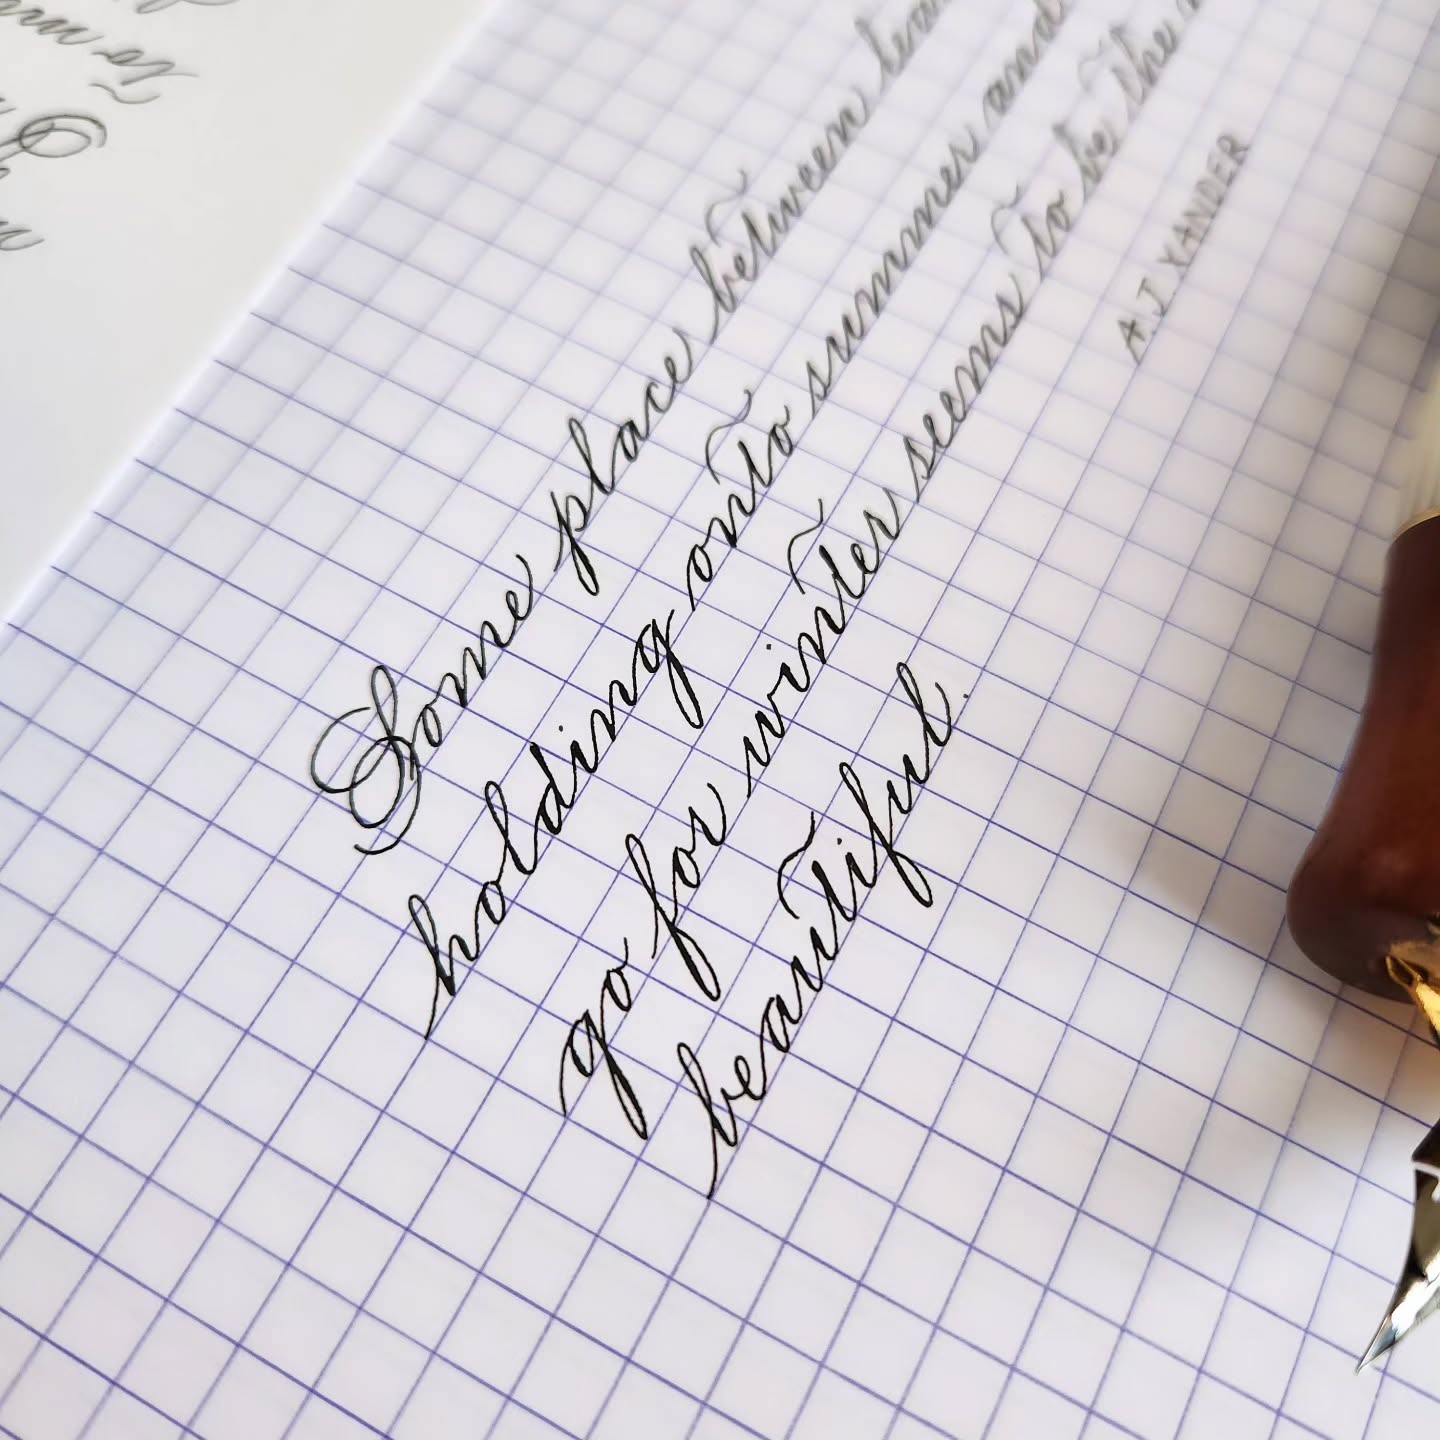 Some place between
holding onto summer and
go for winter seems to be the
beautiful.
A.J XANDER
to